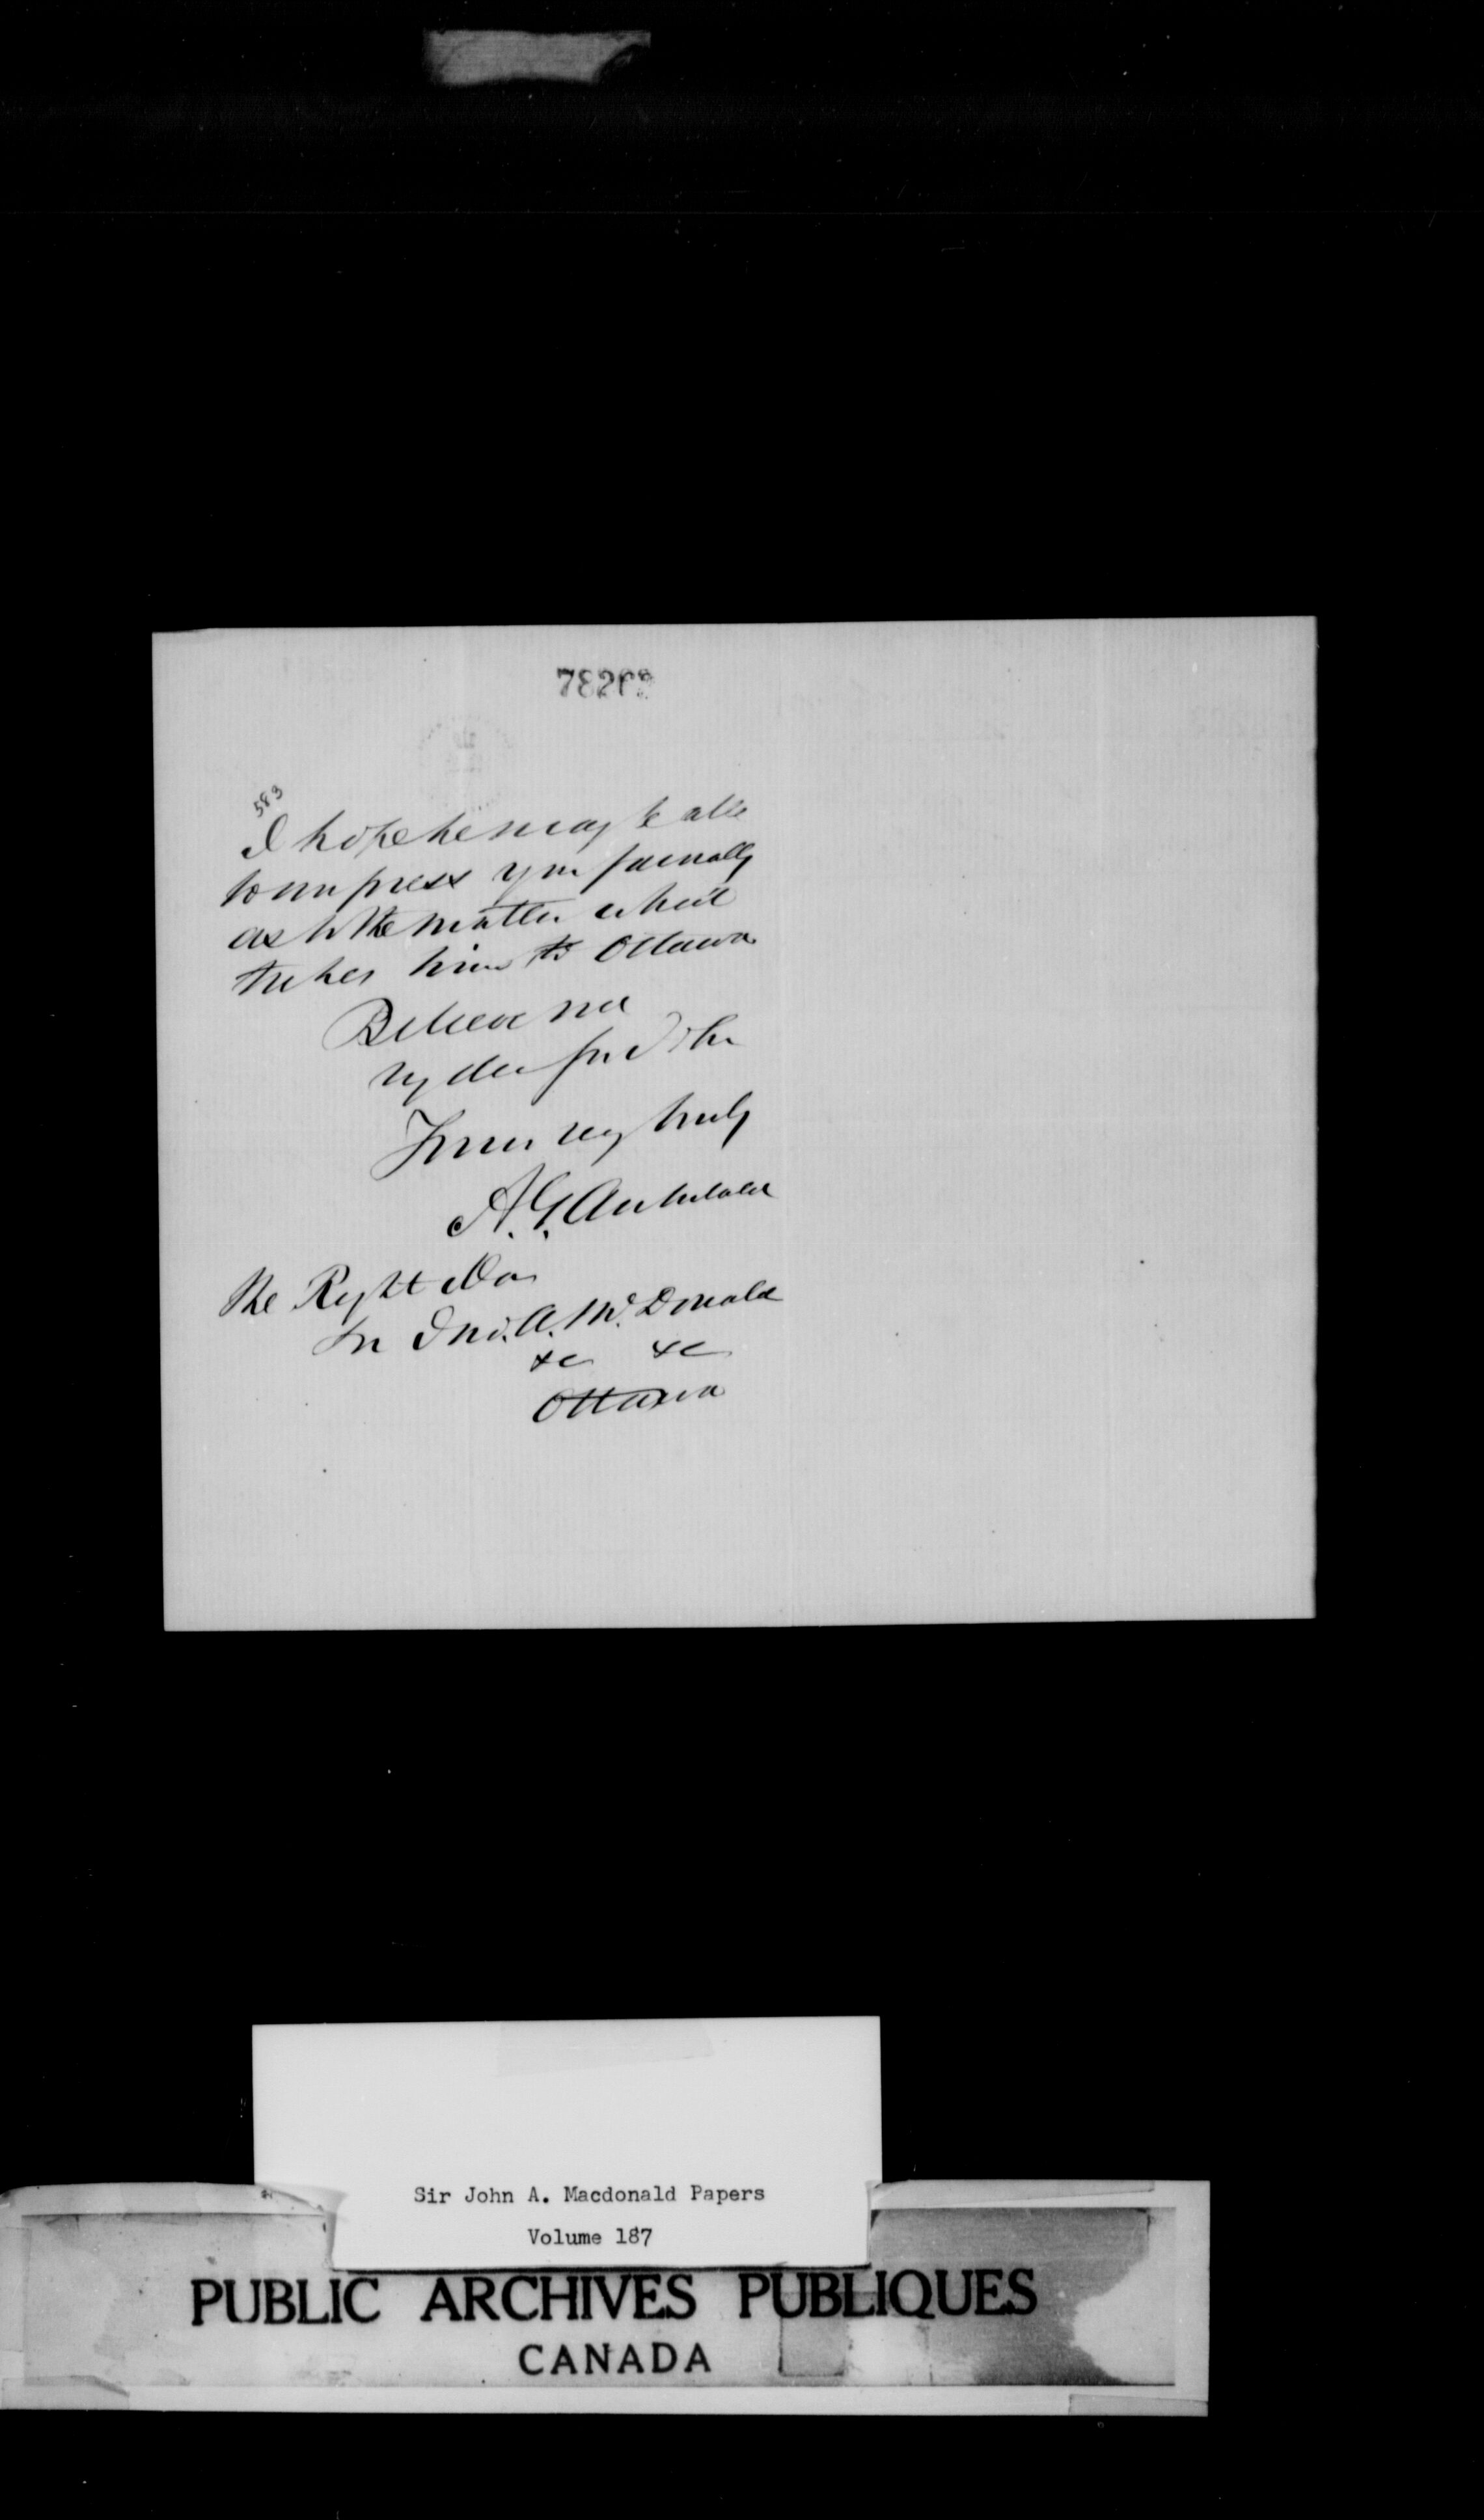 583
I hope he may be able
to impress you favorably
as to the matter which
takes him to Ottawa
Believe me
my dear Sir John
Yours very truly
A. G. Archibald
The Right Hon
Sir Jno. A. McDonald
&c &c
Ottawa
Sir John A. Macdonald Papers
Volume 187
PUBLIC ARCHIVES PUBLIQUES
CANADA